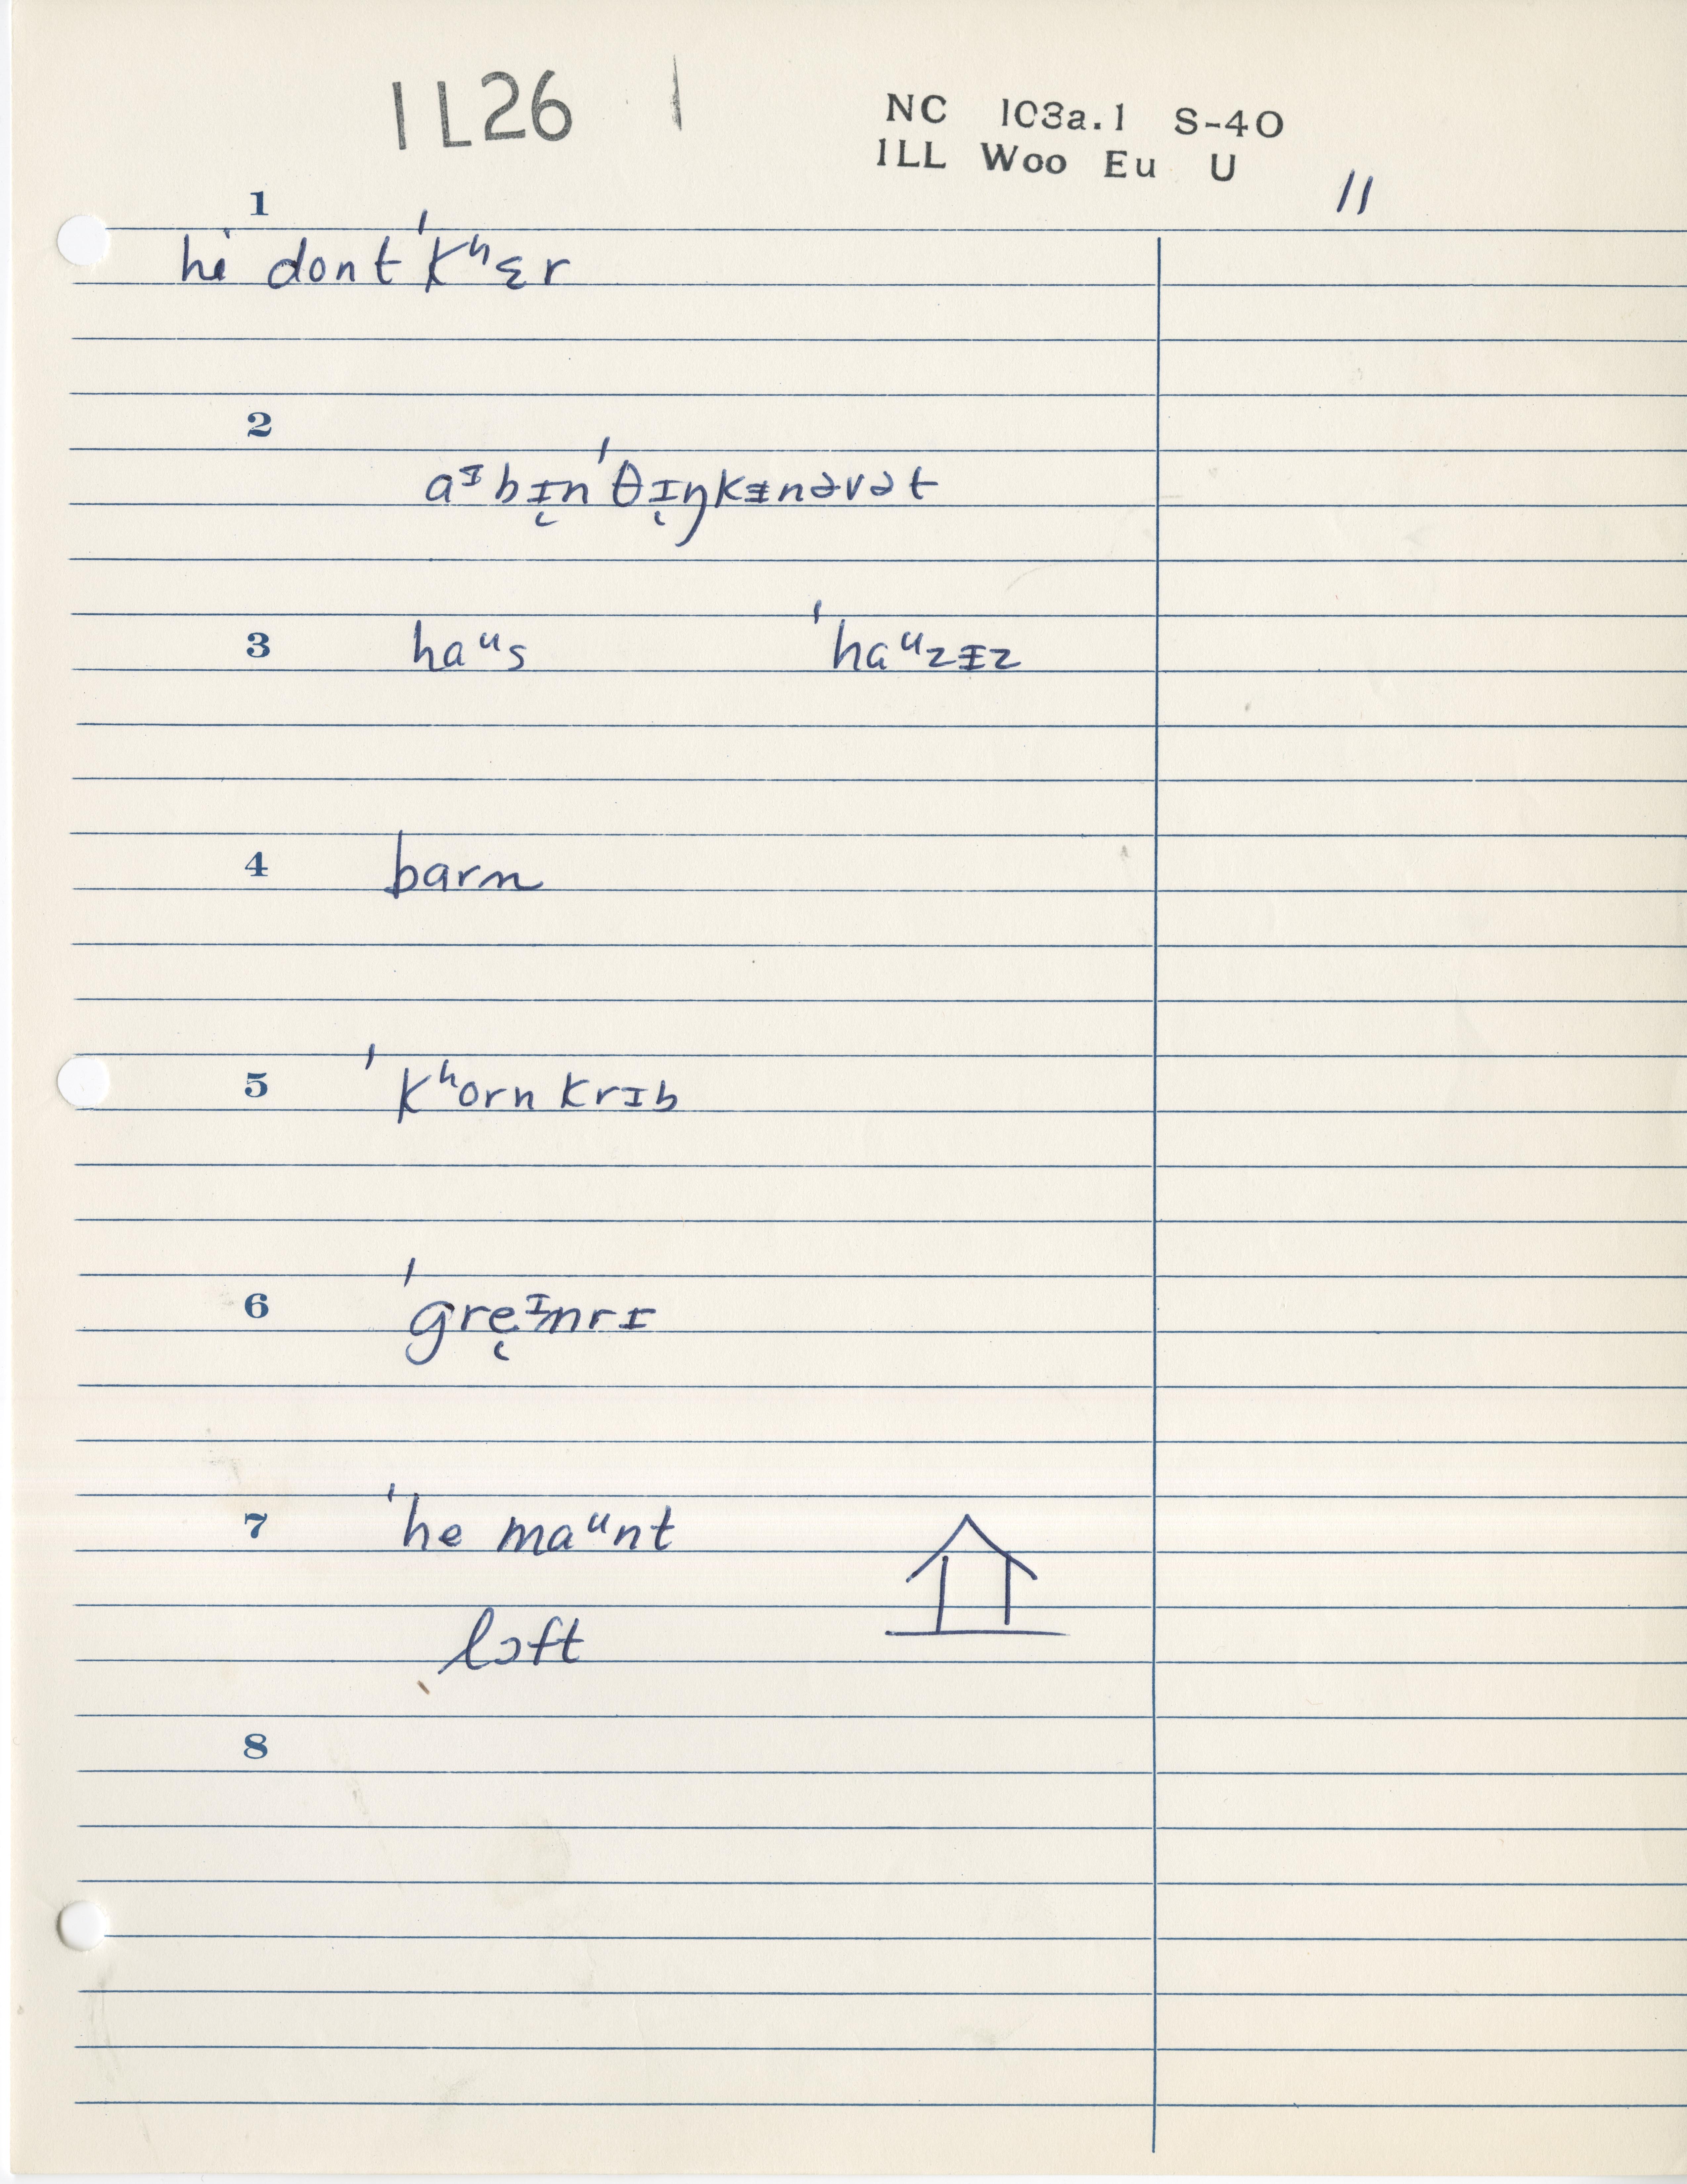 IL26 1
NC 103a.1 S-40
ILL Woo Eu U
11
1
hi dont ˈkʰɛr
2
aᶦbɪ̜nˈθɪ̜ŋkᵻnəvət
3 haᵘs ˈhaᵘzᵻz
4 barn
5 ˈkʰorn krɪb
6 ˈgre̜ᶦnrɪ
7 ˈhe maᵘnt
lɔft
8